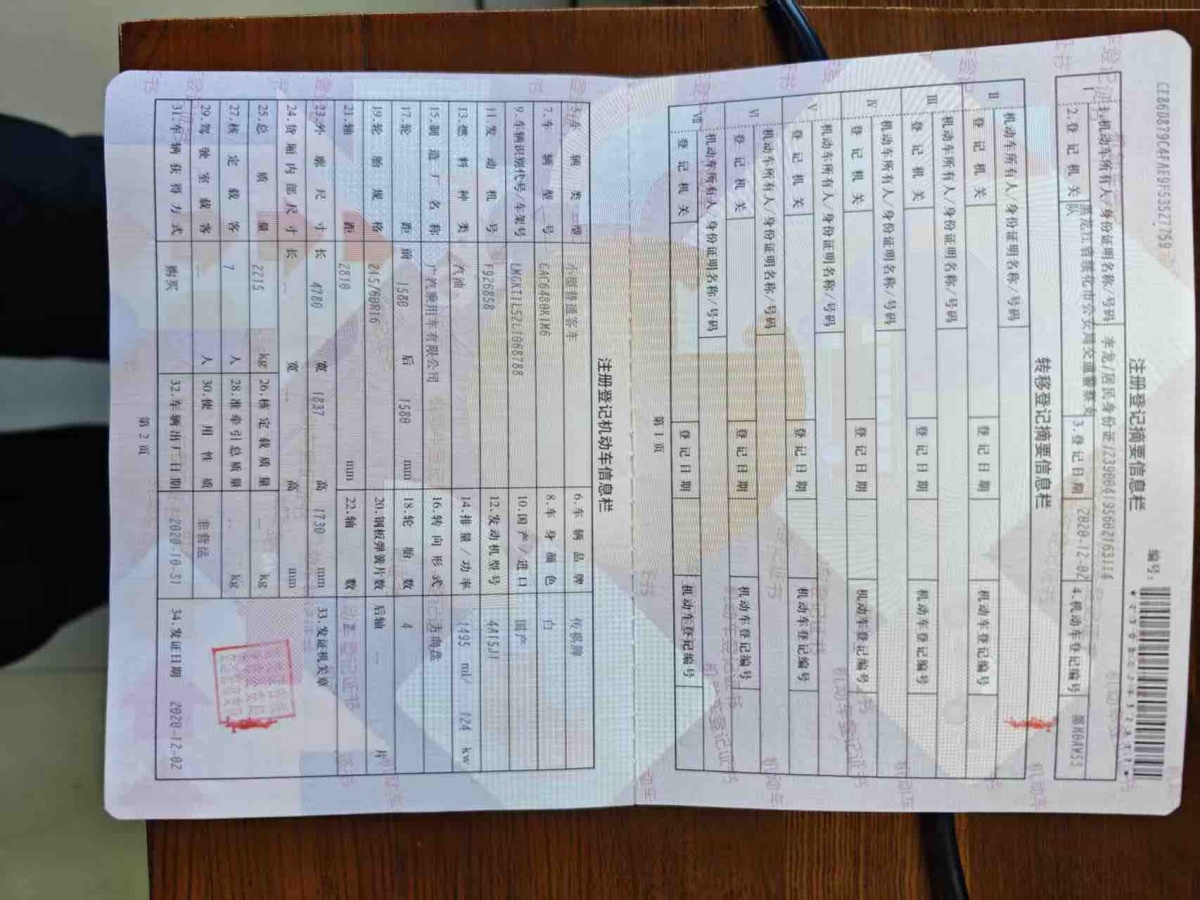 CE86D879C4FAE9F53527759
注册登记摘要信息栏
编号:
I
1.机动车所有人/身份证明名称/号码 李龙/居民身份证/239004195602163114
2.登记机关 黑龙江省绥化市公安局交通警察支队 3.登记日期 2020-12-02 4.机动车登记编号 黑M0AW53
转移登记摘要信息栏
II
机动车所有人/身份证明名称/号码
登记机关 登记日期 机动车登记编号
III
机动车所有人/身份证明名称/号码
登记机关 登记日期 机动车登记编号
IV
机动车所有人/身份证明名称/号码
登记机关 登记日期 机动车登记编号
V
机动车所有人/身份证明名称/号码
登记机关 登记日期 机动车登记编号
VI
机动车所有人/身份证明名称/号码
登记机关 登记日期 机动车登记编号
VII
机动车所有人/身份证明名称/号码
登记机关 登记日期 机动车登记编号
第1页
注册登记机动车信息栏
5.车辆类型 小型普通客车 6.车辆品牌 传祺牌
7.车辆型号 GAC6480K1M6 8.车身颜色 白
9.车辆识别代号/车架号 10.国产/进口 国产
11.发动机号 F926858 12.发动机型号 4A15J1
13.燃料种类 汽油 14.排量/功率 1495 ml/ 124 kw
15.制造厂名称 广汽乘用车有限公司 16.转向形式 方向盘
17.轮距 前 1580 后 1580 mm 18.轮胎数 4
19.轮胎规格 215/60R16 20.钢板弹簧片数 后轴 -- 片
21.轴距 2810 mm 22.轴数
23.外廓尺寸 长 4780 宽 1837 高 1730 mm 33.发证机关章
24.货厢内部尺寸 长 -- 宽 -- 高 mm
25.总质量 2215 kg 26.核定载质量 -- kg
27.核定载客 7 人 28.准牵引总质量 -- kg
29.驾驶室载客 -- 人 30.使用性质 非营运
31.车辆获得方式 购买 32.车辆出厂日期 2020-10-31 34.发证日期 2020-12-02
第2页